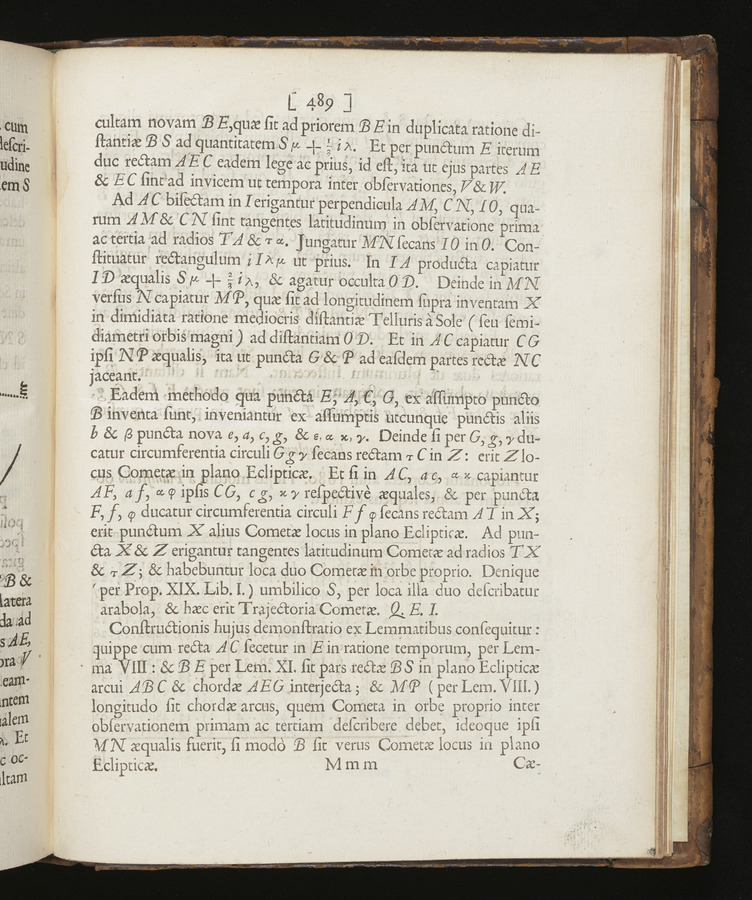 [ 489 ]
cultam novam BE, quæ ſit ad priorem BE in duplicata ratione di-
ſtantiæ BS ad quantitatem Sμ + ⅓ iλ. Et per punctum E iterum
duc rectam AEC eadem lege ac prius, id eſt, ita ut ejus partes AE
& EC ſint ad invicem ut tempora inter obſervationes, V & W.
Ad AC biſectam in I erigantur perpendicula AM, CN, IO, qua-
rum AM & CN ſint tangentes latitudinum in obſervatione prima
ac tertia ad radios TA & τα. Jungatur MN ſecans IO in O. Con-
ſtituatur rectangulum iIλμ ut prius. In IA producta capiatur
ID æqualis Sμ + ⅔ iλ, & agatur occulta OD. Deinde in MN
verſus N capiatur MP, quæ ſit ad longitudinem ſupra inventam X
in dimidiata ratione mediocris diſtantiæ Telluris à Sole (ſeu ſemi-
diametri orbis magni) ad diſtantiam OD. Et in AC capiatur CG
ipſi NP æqualis, ita ut puncta G & P ad eaſdem partes rectæ NC
jaceant.
Eadem methodo qua puncta E, A, C, G, ex aſſumpto puncto
B inventa ſunt, inveniantur ex aſſumptis utcunque punctis aliis
b & β puncta nova e, a, c, g, & ε, α, κ, γ. Deinde ſi per G, g, γ du-
catur circumferentia circuli Ggγ ſecans rectam τC in Z: erit Z lo-
cus Cometæ in plano Eclipticæ. Et ſi in AC, ac, ακ capiantur
AF, af, αφ ipſis CG, cg, κγ reſpectivè æquales, & per puncta
F, f, φ ducatur circumferentia circuli Ffφ ſecans rectam AT in X;
erit punctum X alius Cometæ locus in plano Eclipticæ. Ad pun-
cta X & Z erigantur tangentes latitudinum Cometæ ad radios TX
& τZ; & habebuntur loca duo Cometæ in orbe proprio. Denique
per Prop. XIX. Lib. I.) umbilico S, per loca illa duo deſcribatur
arabola, & hæc erit Trajectoria Cometæ. Q. E. I.
Conſtructionis hujus demonſtratio ex Lemmatibus conſequitur:
quippe cum recta AC ſecetur in E in ratione temporum, per Lem-
ma VIII: & BE per Lem. XI. ſit pars rectæ BS in plano Eclipticæ
arcui ABC & chordæ AEG interjecta; & MP (per Lem. VIII.)
longitudo ſit chordæ arcus, quem Cometa in orbe proprio inter
obſervationem primam ac tertiam deſcribere debet, ideoque ipſi
MN æqualis fuerit, ſi modò B ſit verus Cometæ locus in plano
Eclipticæ.
Mmm
Cæ-